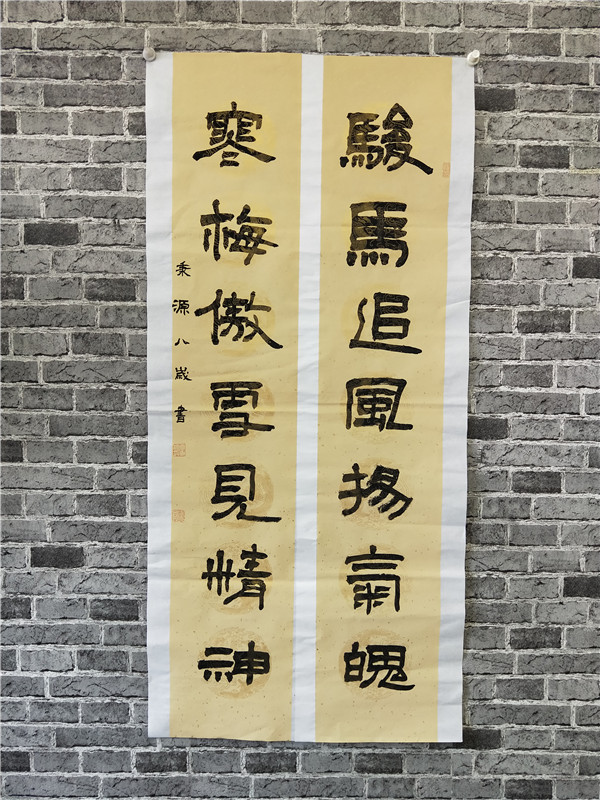 駿馬追風揚氣魄
寒梅傲雪見精神
秉源八歲書